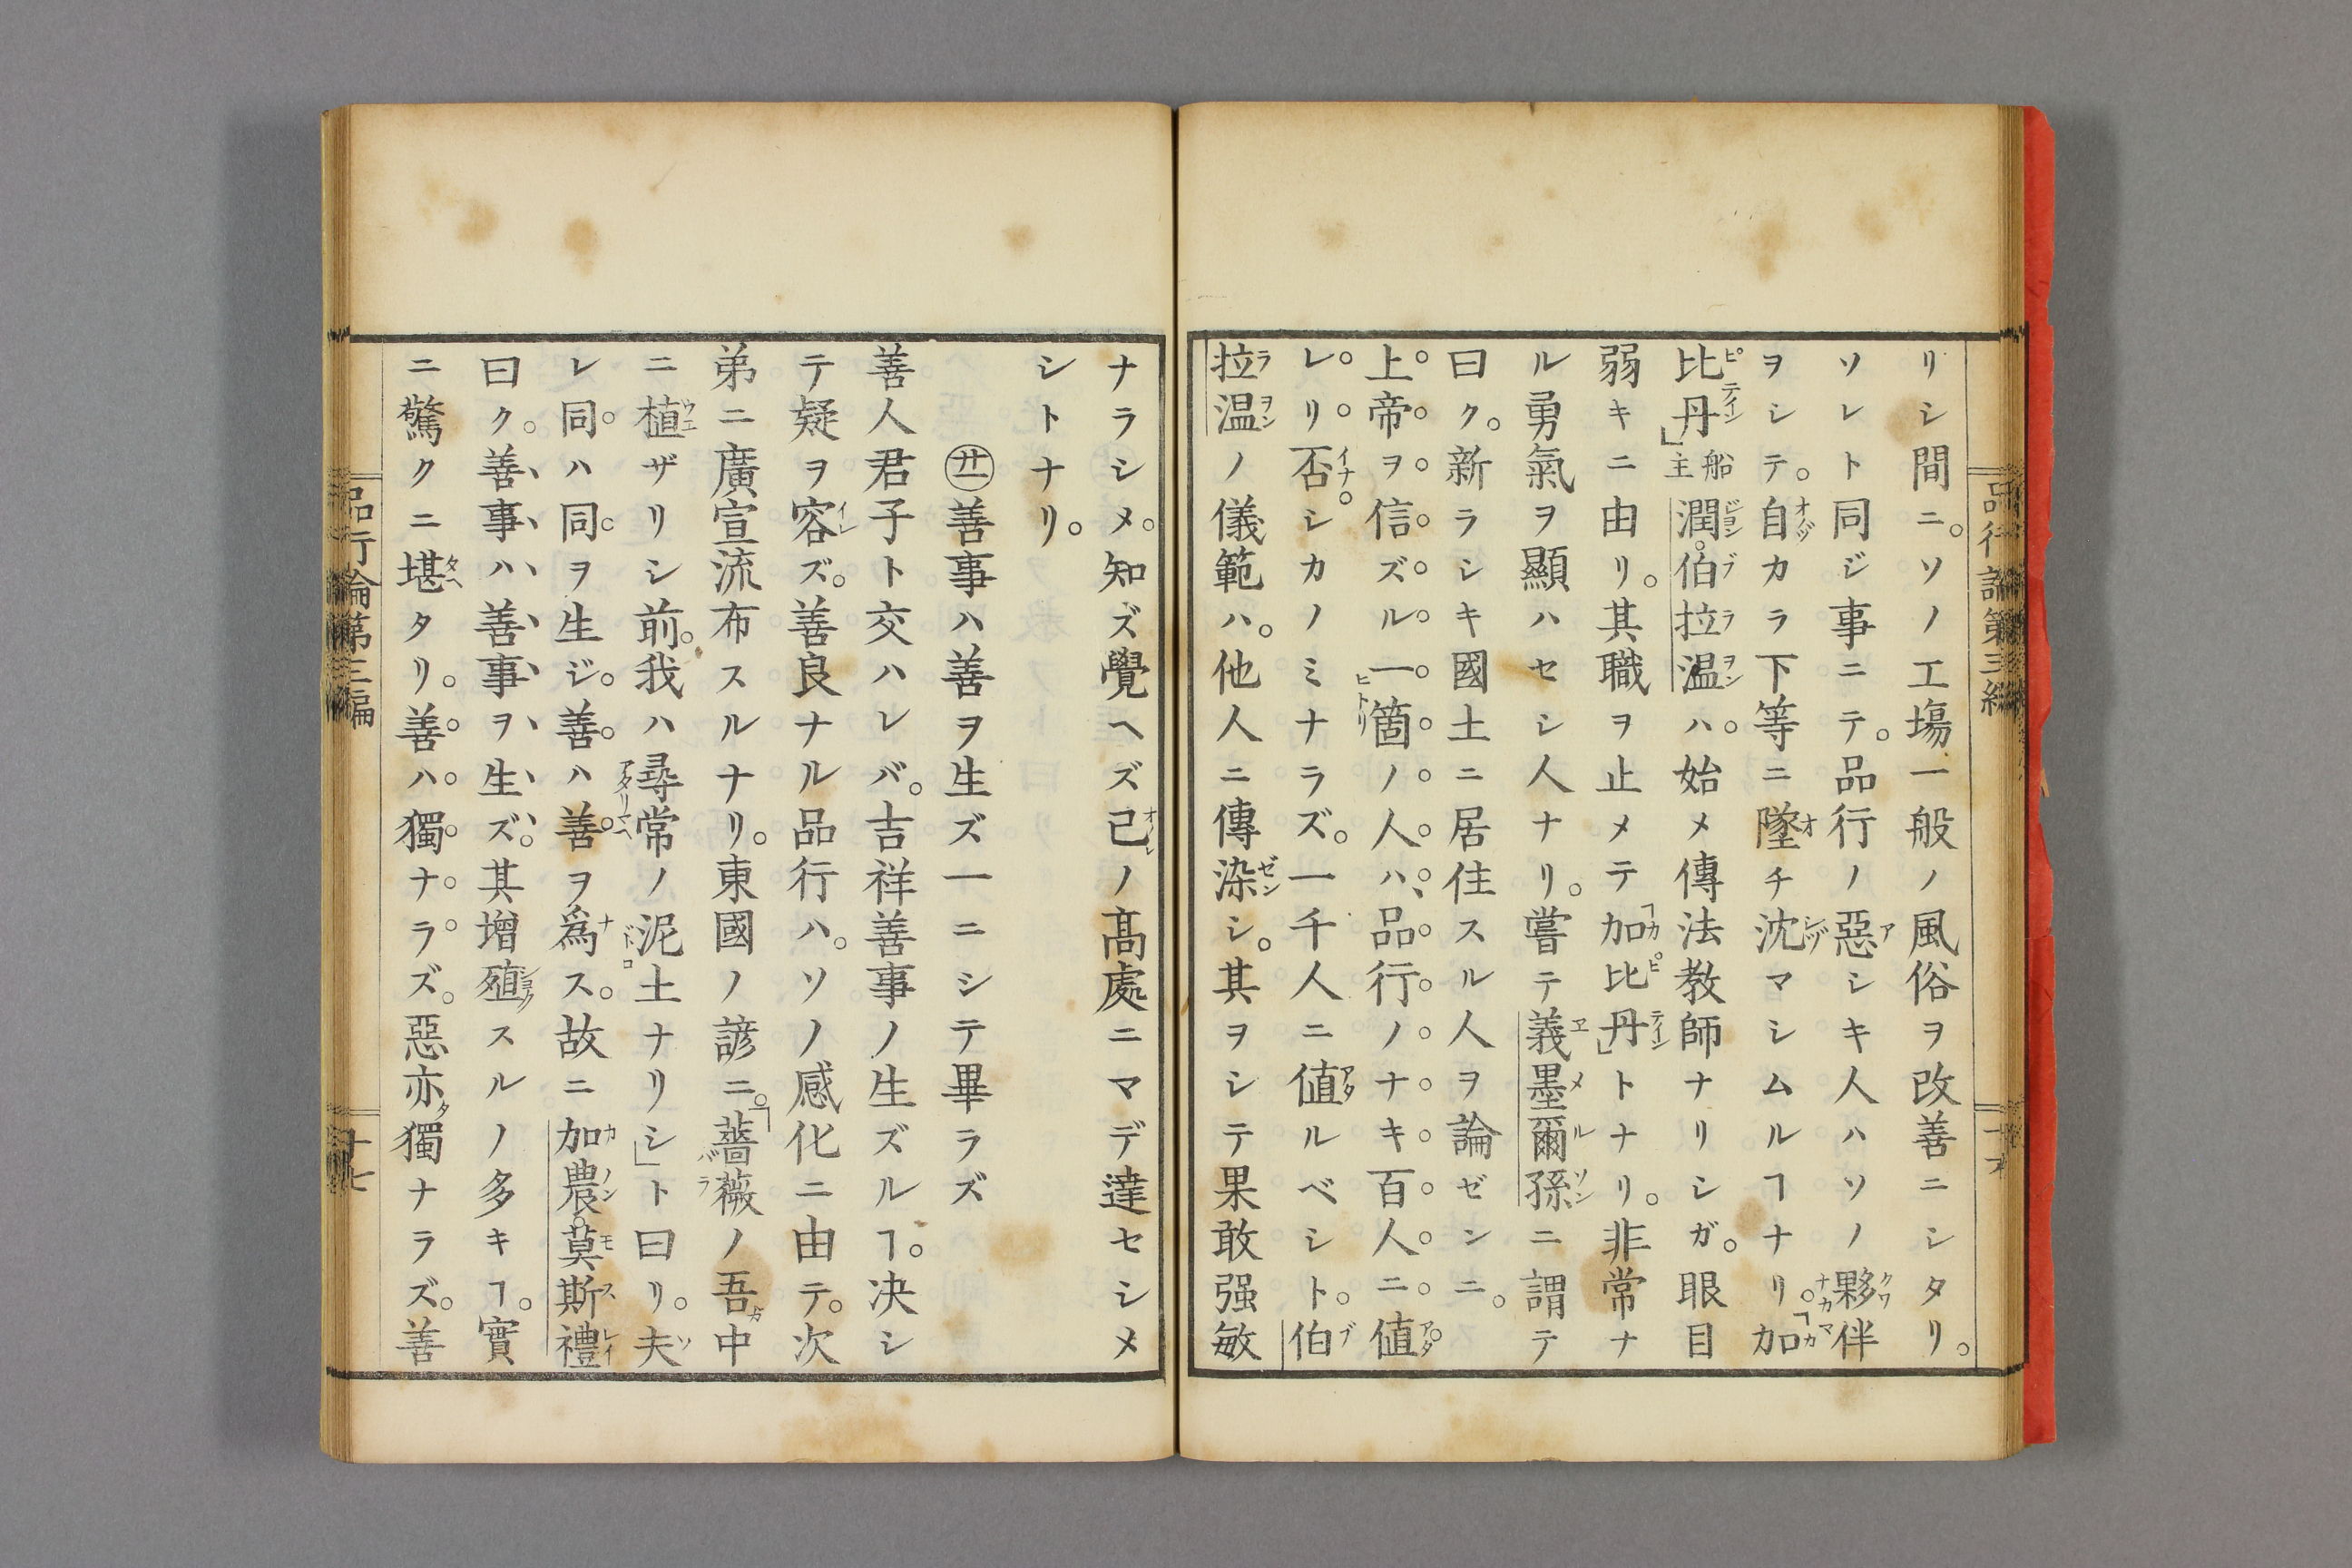 リシ間ニ。ソノ工塲一般ノ風俗ヲ改善ニシタリ。
ソレト同ジ事ニテ。品行ノ惡シキ人ハソノ夥伴
ヲシテ。自カラ下等ニ墜チ沈マシムルヿナリ。「加
比丹」船主潤。伯拉温ハ。始メ傳法教師ナリシガ。眼目
弱キニ由リ。其職ヲ止メテ「加比丹」トナリ。非常ナ
ル勇氣ヲ顯ハセシ人ナリ。嘗テ義墨爾孫ニ謂テ
曰ク。新ラシキ國土ニ居住スル人ヲ論ゼンニ。
上帝ヲ信ズル一箇ノ人ハ、品行ノナキ百人ニ値
レリ否。シカノミナラズ。一千人ニ値ルベシト。伯
拉温ノ儀範ハ。他人ニ傳染シ。其ヲシテ果敢强敏
品行論第三編
ナラシメ。知ズ覺ヘズ己ノ髙處ニマデ達セシメ
シトナリ。
㊁善事ハ善ヲ生ズ一ニシテ畢ラズ
善人君子ト交ハレバ。吉祥善事ノ生ズルヿ。決シ
テ疑ヲ容ズ。善良ナル品行ハ。ソノ感化ニ由テ。次
弟ニ廣宣流布スルナリ。東國ノ諺ニ。「薔薇ノ吾中
ニ植ザリシ前。我ハ尋常ノ泥土ナリシ」ト曰リ。夫
レ同ハ同ヲ生ジ。善ハ善ヲ爲ス。故ニ加農。莫斯禮
曰ク。善事ハ善事ヲ生ズ。其增殖スルノ多キヿ。實
ニ驚クニ堪タリ。善ハ獨ナラズ。惡亦獨ナラズ。善
品行論第三編
十七